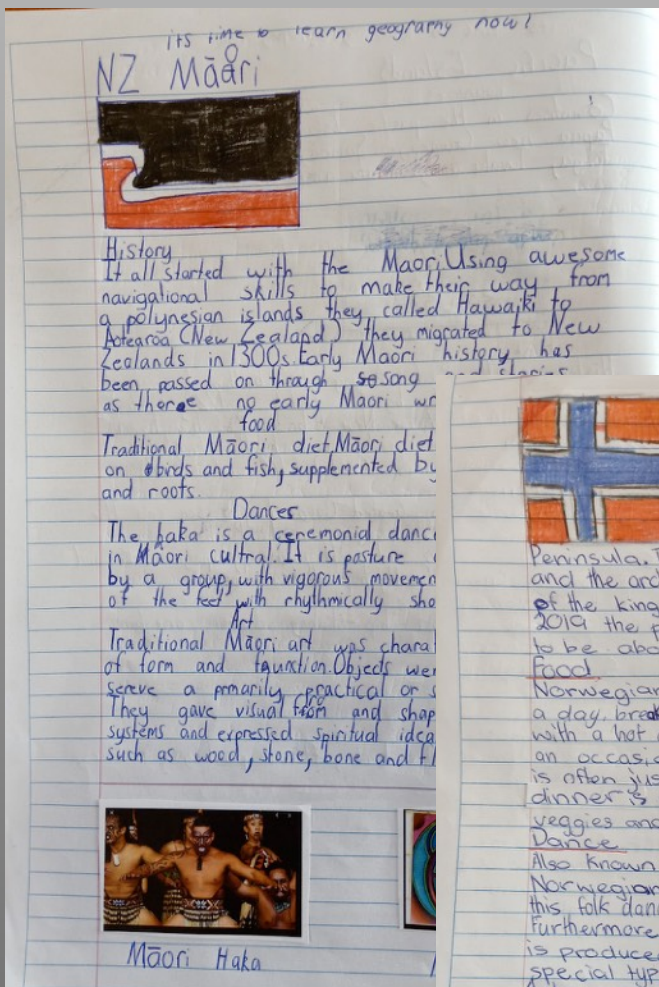 its time to learn geography now!
NZ Māori
History
It all started with the Maori. Using awesome
navigational skills to make their way from
a polynesian islands they called Hawaiki to
Aotearoa (New Zealand) they migrated to New
Zealands in 1300s. Early Maori history has
been passed on through song and stories
as there no early Maori wr
food
Traditional Māori diet. Māori diet
on birds and fish, supplemented by
and roots.
Dances
The haka is a ceremonial danc
in Māori cultral. It is posture
by a group, with vigorous movemen
of the feet with rhythmically sho
Art
Traditional Māori art was charat
of form and Objects wer
sereve a prmarily practical or s
They gave visual from and shap
systems and expressed spiritual idea
such as wood, stone, bone and fl
Māori Haka
Peninsula.
and the arc
of the king
2019 the p
to be abo
Food
Norwegian
a day, break
with a hot
an occasio
is often jus
dinner is
veggies and
Dance
Also Known
Norwegian
this folk dan
Furthermore
is produce
special typ